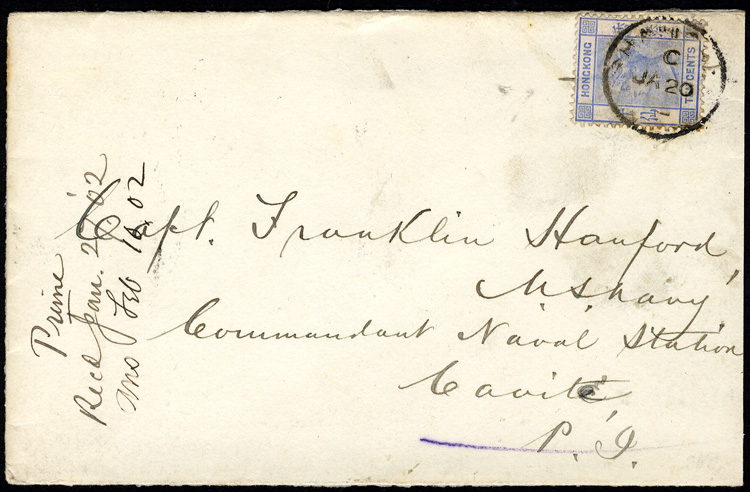 HONGKONG
TEN CENTS
C
JA 20
Capt. Franklin Hanford,
U.S. Navy,
Commandant Naval Station
Cavite,
P. I.
Prime
Recd Jan. 27. 02
Ans Feb 18. 02